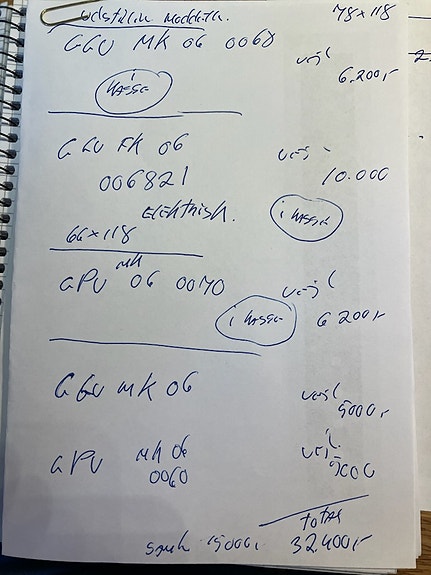 78x118
GGU MK 06 0068
vejl
6.200,-
i kasse
GGU FK 06
vejl
006821
10.000
Elektrisk.
i kasse
66x118
MK
GPU 06 0070
vejl
i kasse
6200,-
GGU MK 06
vejl
5000,-
GPU MK 06
vejl.
0060
5000
total
32.400,-